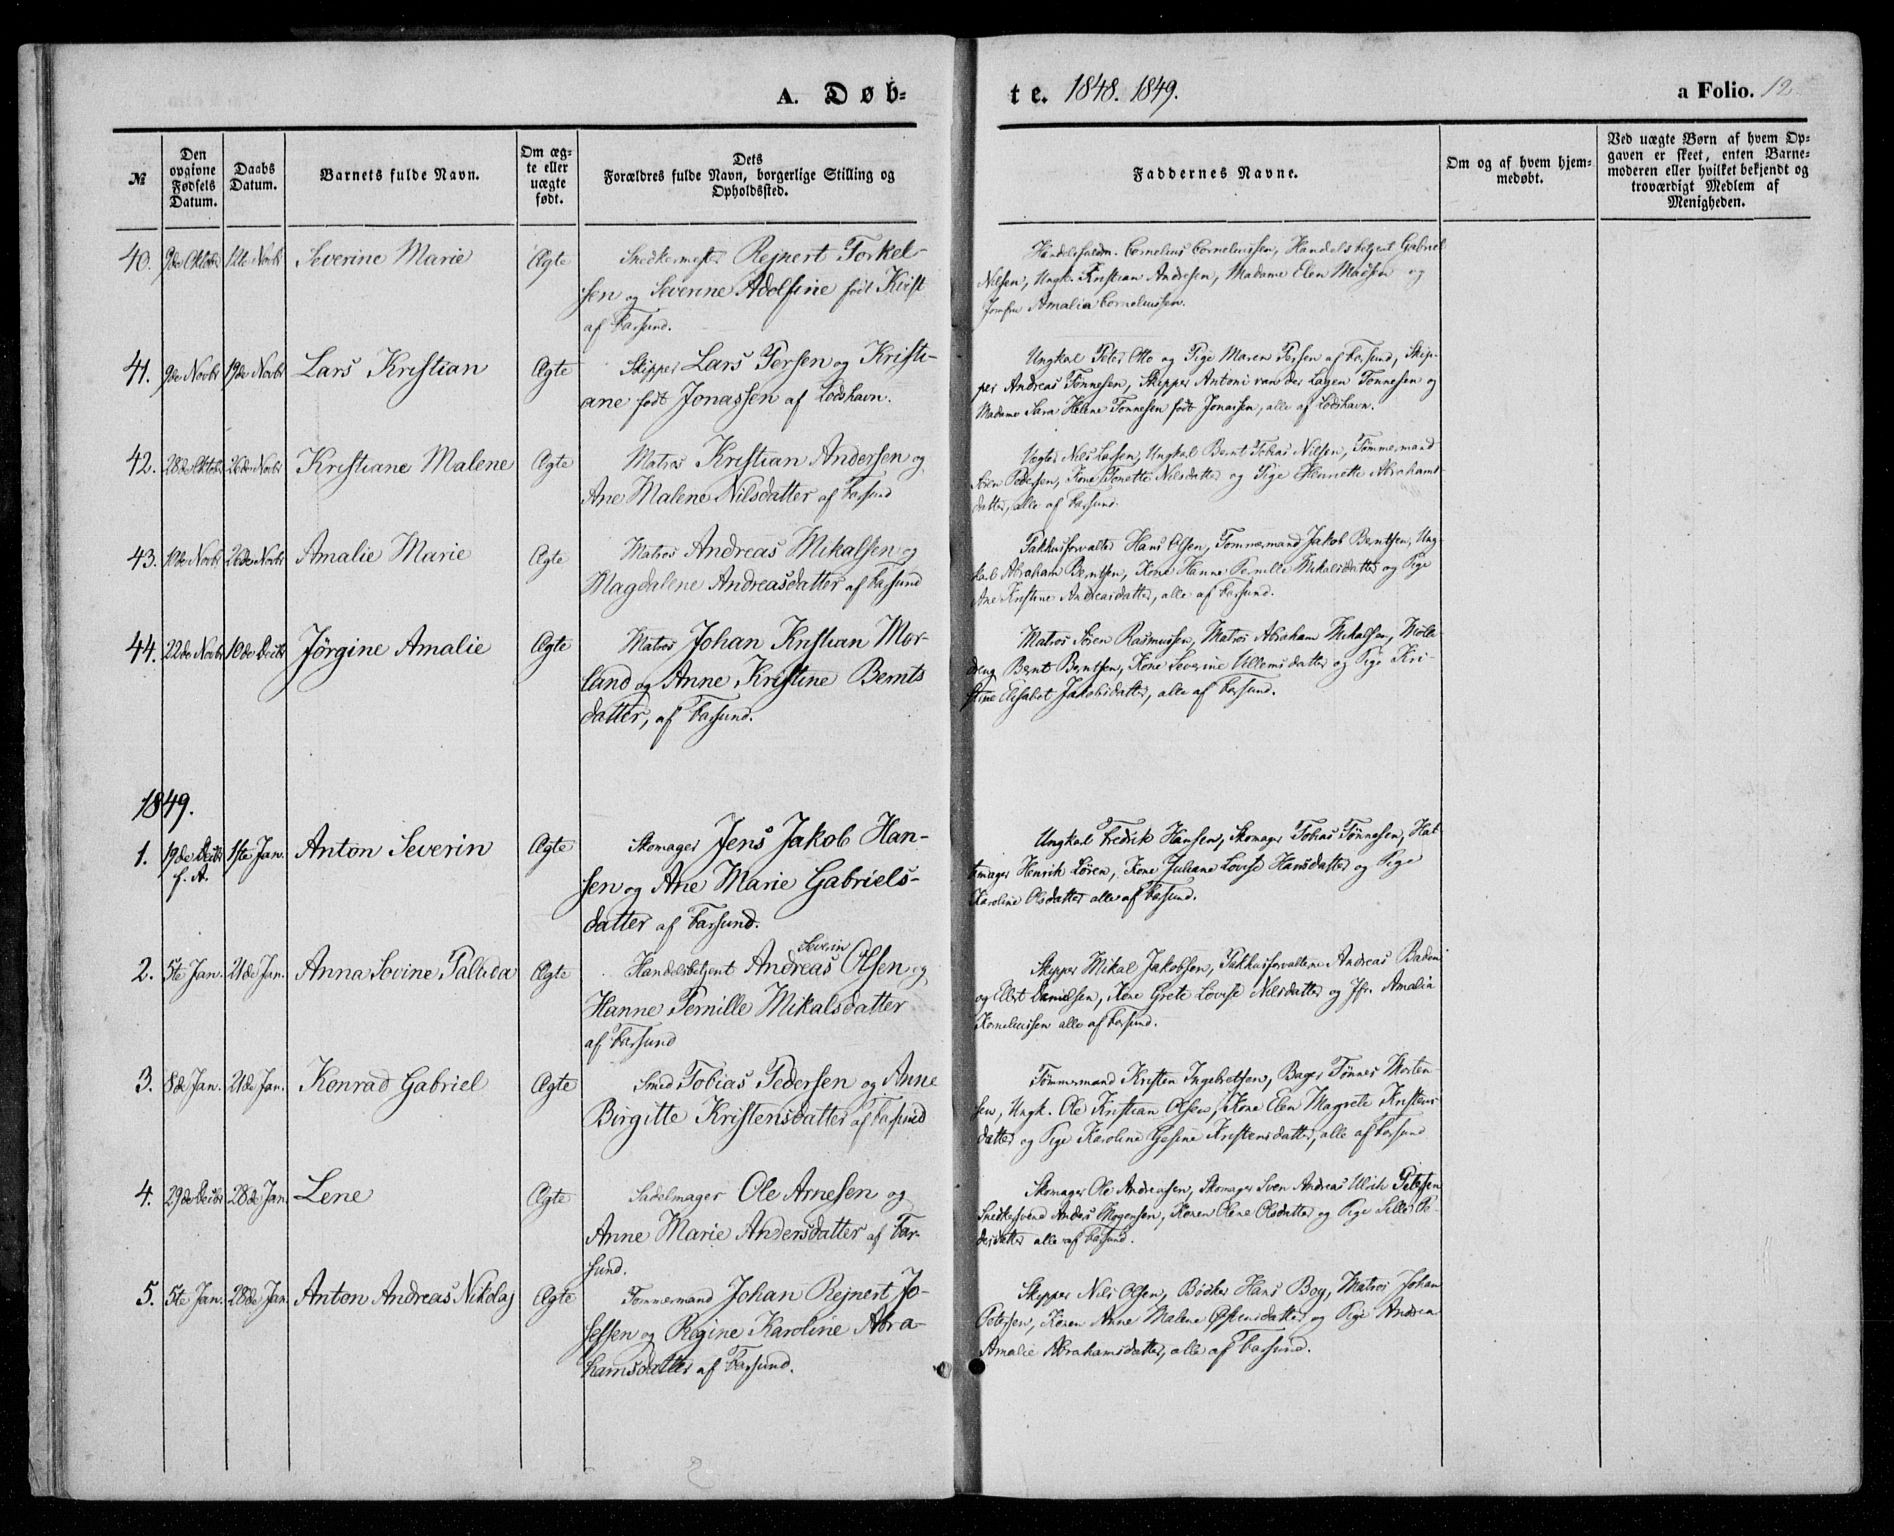 A. Døb-
te. 1848. 1849.
a Folio. 12
№
Den opgivne Fødsels Datum.
Daabs Datum.
Barnets fulde Navn.
Om ægte eller uægte født.
Dets Forældres fulde Navn, borgerlige Stilling og Opholdssted.
Faddernes Navne.
Om og af hvem hjemmedøbt.
Ved uægte Børn af hvem Opgaven er skeet, enten Barnemoderen eller hvilket bekjendt og troværdigt Medlem af Menigheden.
40. 9de Oktober 12te Novbr Severine Marie Ægte Snedkermester Rejnert Torkel-
sen og Severine Adolfine født Kvist
af Farsund.
Handelsfuldm. Cornelius Corneliussen, Handelsbetjent Gabriel
Nilsen, Ungk. Kristian Andresen, Madame Elen Madsen og
Jomfru Amalia Corneliussen.
41. 9de Novbr 19de Novbr Lars Kristian Ægte Skipper Lars Persen og Kristi-
ane født Jonassen af Lodshavn.
Ungkal Peter Otto og Pige Maren Persen af Farsund, Skip-
per Andreas Tönnesen, Skipper Antoni van der Lagen Tönnesen og
Madame Sara Helene Tönnesen født Jonassen, alle af Lodshavn.
42. 28de Oktober 26de Novbr Kristiane Malene Ægte Matros Kristian Andersen og
Ane Malene Nilsdatter af Farsund
Vegter Nils Larsen, Ungkal Bernt Tobias Nilsen, Tömmermand
Sören Pedersen, Kone Tonette Nilsdatter og Pige Henriette Abrahams
datter, alle af Farsund.
43. 10de Novbr 26de Novbr Amalie Marie Ægte Matros Andreas Mikalsen og
Magdalene Andreasdatter af Farsund
Pakhusforvalter Hans Olsen, Tömmermand Jakob Berntsen, Ung-
karl Abraham Berntsen, Kone Hanne Pernille Mikalsdatter og Pige
Ane Kristine Andreasdatter, alle af Farsund.
44. 22de Novbr 10de Decbr Jörgine Amalie Ægte Matros Johan Kristian Mor-
land og Anne Kristine Bernts
datter, af Farsund.
Matros Sören Rasmussen, Matros Abraham Mikalsen,
dreng Bernt Berntsen, Kone Severine Villemsdatter og Pige Kri-
stine Elisabet Jakobsdatter, alle af Farsund.
1849.
1. 19de Decbr f. A. 1ste Jan. Anton Severin Ægte Skomager Jens Jakob Han-
sen og Ane Marie Gabriels-
datter af Farsund.
Ungkal Fredrik Hansen, Skomager Tobias Tönnesen, Hat-
temager Henrik Lören, Kone Juliane Lovise Hansdatter og Pige
Karoline Olsdatter alle af Farsund.
2. 5te Jan. 21de Jan. Anna Sovine Palleda Ægte Handelsbetjent Andreas Severin Olsen og
Hanne Pernille Mikalsdatter
af Farsund
Skipper Mikal Jakobsen, Pakhusforvalterne Andreas Baden
og Ellert Danielsen, Kone Grete Lovise Nilsdatter og Jfr. Amalia
Korneliussen alle af Farsund.
3. 8de Jan. 21de Jan. Konrad Gabriel Ægte Smed Tobias Pedersen og Anne
Birgitte Kristensdatter af Farsund
Tömmermand Kristen Ingebretsen, Bager Tönnes Morten
sen, Ungk. Ole Kristian Olsen, Kone Elen Magrete Kristens
datter og Pige Karoline Gesine Kristensdatter, alle af Farsund
4. 29de Decbr 28de Jan. Lene Ægte Sadelmager Ole Arnesen og
Anne Marie Andersdatter af Far-
sund.
Skomager Ole Andreasen, Skomager Sven Andreas Ulrik Petersen
Snedkersvend Anders Mogensen, Konen Olene Olsdatter og Pige Sille Pe-
dersdatter alle af Farsund.
5. 5te Jan. 28de Jan. Anton Andreas Nikolaj Ægte Tömmermand Johan Rejnert Jo-
sefsen og Regine Karoline Abra-
hamsdatter af Farsund.
Skipper Nils Olsen, Bödker Hans Bog, Matros Johan
Petersen, Konen Anne Malene Østensdatter og Pige Andrea
Amalie Abrahamsdatter, alle af Farsund.